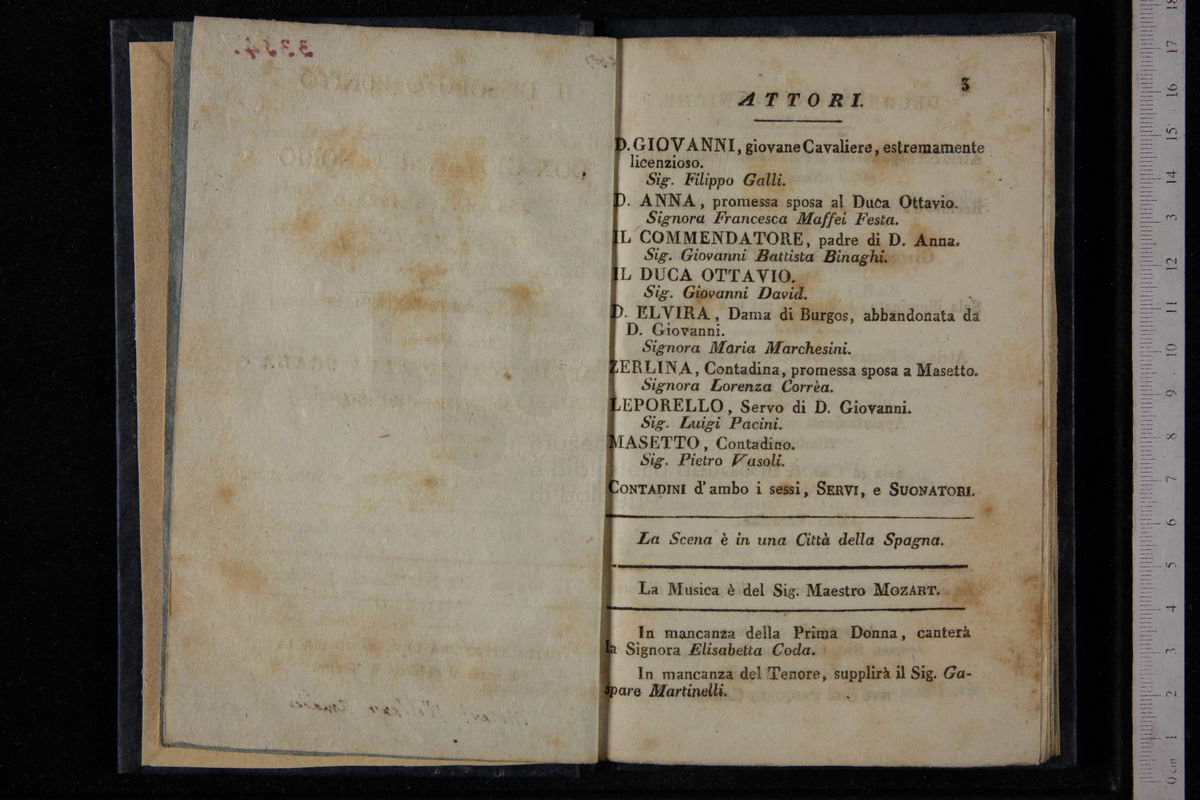 3
ATTORI.
D. GIOVANNI, giovane Cavaliere, estremamente
licenzioso.
Sig. Filippo Galli.
D. ANNA, promessa sposa al Duca Ottavio.
Signora Francesca Maffei Festa.
IL COMMENDATORE, padre di D. Anna.
Sig. Giovanni Battista Binaghi.
IL DUCA OTTAVIO.
Sig. Giovanni David.
D. ELVIRA, Dama di Burgos, abbandonata da
D. Giovanni.
Signora Maria Marchesini.
ZERLINA, Contadina, promessa sposa a Masetto.
Signora Lorenza Corrèa.
LEPORELLO, Servo di D. Giovanni.
Sig. Luigi Pacini.
MASETTO, Contadino.
Sig. Pietro Vasoli.
CONTADINI d'ambo i sessi, SERVI, e SUONATORI.
La Scena è in una Città della Spagna.
La Musica è del Sig. Maestro MOZART.
In mancanza della Prima Donna, canterà
la Signora Elisabetta Coda.
In mancanza del Tenore, supplirà il Sig. Ga-
spare Martinelli.
0 cm 1 2 3 4 5 6 7 8 9 10 11 12 13 14 15 16 17 18